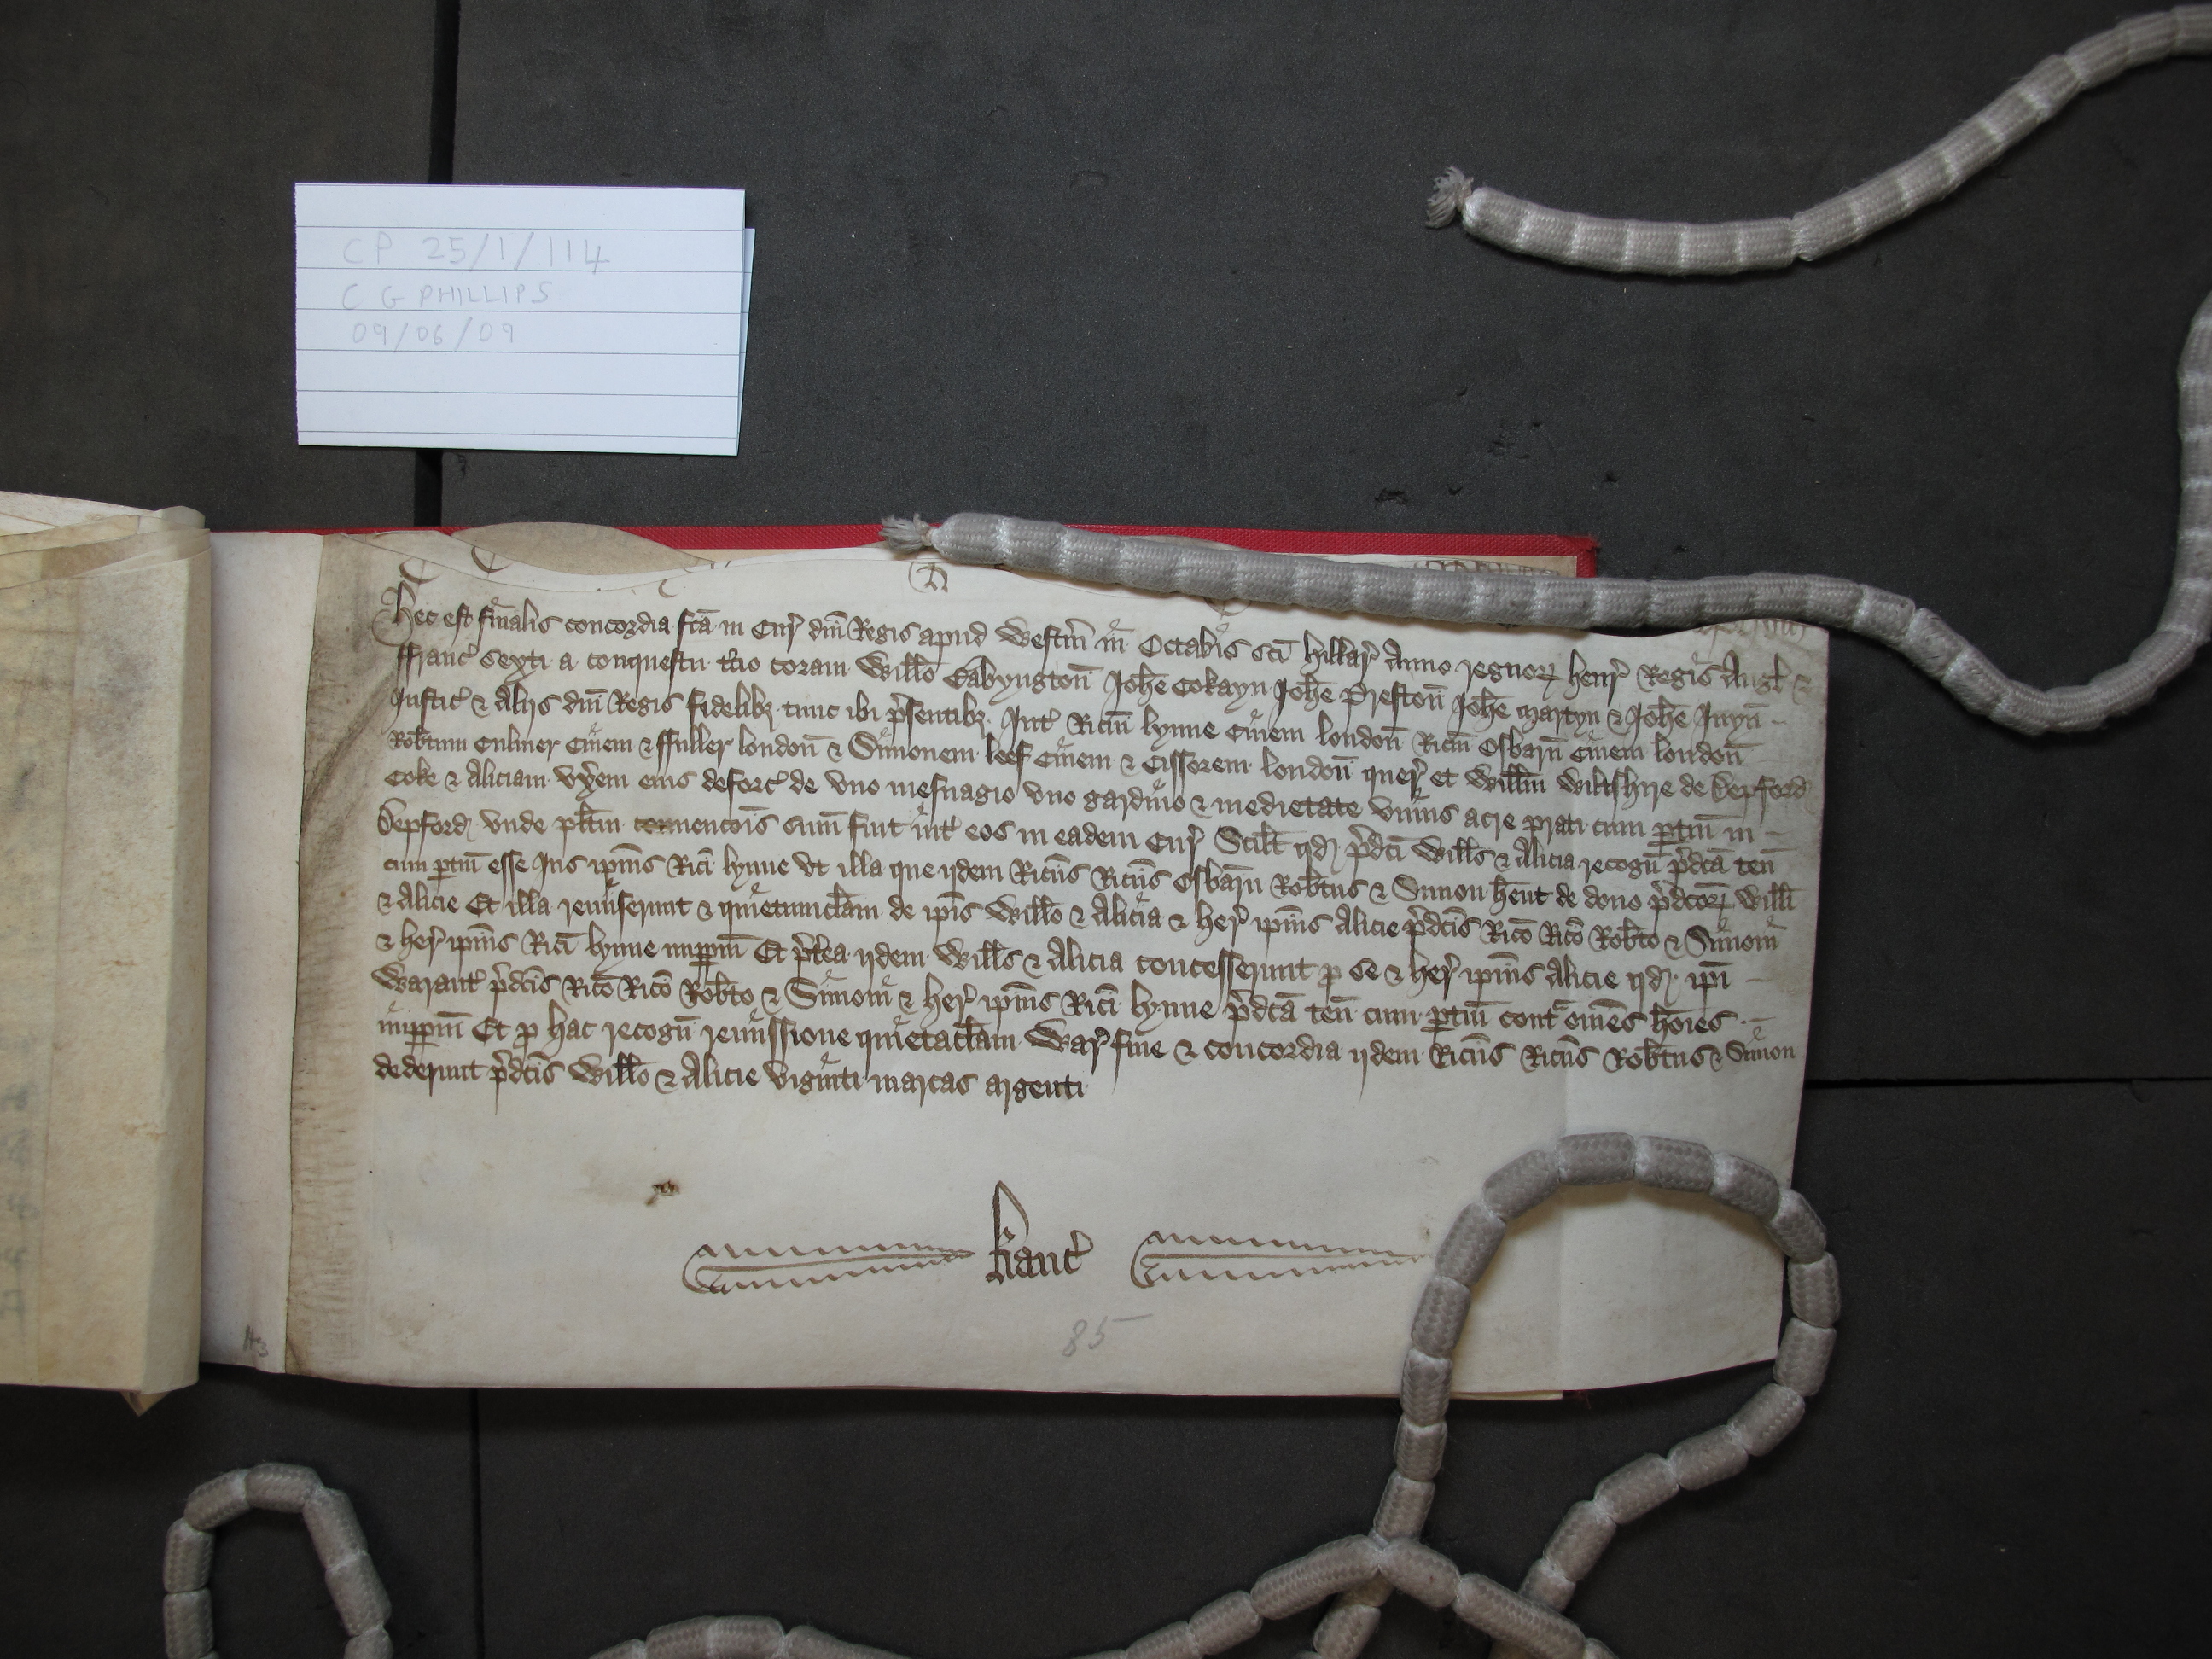 CP 25/1/114
C G PHILLIPS
09/06/09
Hec est finalis concordia fcā in Cur̉ dn̄i Regis apud Westm̄ in Octabis scī Hillar̉ Anno regnoꝝ Henr̉ Regis Angł &
Franc̉ sexti a conquestu t̉cio coram Willo Babyngton̄ Johē Cokayn Johē Preston̄ Johē Martyn & Johē Juyn̄
Justic̉ & Aliis dn̄i Regis fidelibꝫ tunc ibi p̉sentibꝫ Int̉ Ricm̄ Lynne Ciuem London̄ Ricm̄ Osbarn̄ Ciuem London̄
Rob̄tum Culmer Ciuem & Fuller London̄ & Simonem Leef Ciuem & Cissorem London̄ quer̉ et Willm̄ Wiltshire de Depford
Coke & Aliciam vx̉em eius deforc̉ de vno mesuagio vno gardino & medietate vnius acre prati cum ꝑtin̄ in
Depford vnde plītm conuencōis sum̄ fuit int̉ eos in eadem Cur̉ Scilt̄ qd p̉dcī Wills̄ & Alicia recogn̄ p̉dcā ten̄
cum ꝑtin̄ esse Jus ipīus Ricī Lynne vt illa que iidem Ricūs Ricūs Osbarn̄ Rob̄tus & Simon hēnt de dono p̉dcoꝝ Willī
& Alicie Et illa remiserunt & quietumclam̄ de ip̄is Willo & Alicia & her̉ ipīus Alicie p̉dcīs Ricō Ricō Rob̄to & Simoni
& her̉ ipīus Ricī Lynne imꝑpm̄ Et p̉t̉ea iidem Wills̄ & Alicia concesserunt ꝓ se & her̉ ipīus Alicie qd ip̄i
Warant̉ p̉dcīs Ricō Ricō Rob̄to & Simoni & her̉ ipīus Ricī Lynne p̉dcā ten̄ cum ꝑtin̄ cont̉ om̄es hōies
imꝑpm̄ Et ꝓ hac recogn̄ remissione quietaclam̄ War̉ fine & concordia iidem Ricūs Ricūs Rob̄tus & Simon
dederunt p̉dcīs Willo & Alicie viginti marcas argenti
Kanc̉
85
113